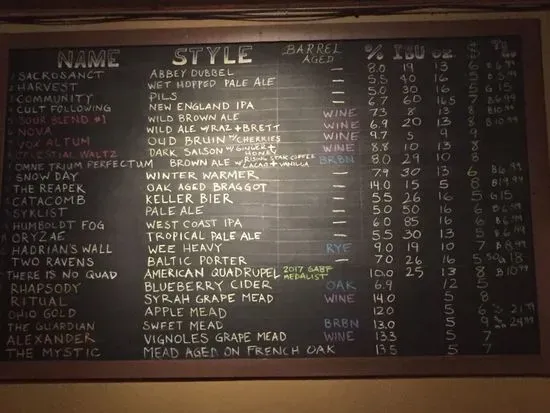 NAME STYLE BARREL AGED % IBU oz. $
SACROSANCT ABBEY DUBBEL — 8.0 19 13 6
HARVEST WET HOPPED PALE ALE — 5.5 40 16 5
COMMUNITY PILS — 5.0 30 16 5 G 15
CULT FOLLOWING NEW ENGLAND IPA — 6.7 60 16.5 7
SOUR BLEND #1 WILD BROWN ALE WINE 7.3 8 13 8
NOVA WILD ALE W/RAZ+BRETT WINE 6.9 20 13 8
VOX ALTUM OUD BRUIN W/CHERRIES WINE 9.7 5 9 9
CELESTIAL WALTZ DARK SAISON W/GINGER+ HONEY WINE 8.8 10 13 8
OMNE TRIUM PERFECTUM BROWN ALE W/ RISING STAR COFFEE CACAO + VANILLA BRBN 8.0 29 10 8
SNOW DAY WINTER WARMER — 7.9 30 13 6
THE REAPER OAK AGED BRAGGOT — 14.0 15 5 8
CATACOMB KELLER BIER — 5.5 26 16 5 G15
SYKLIST PALE ALE — 5.0 50 16 6
HUMBOLDT FOG WEST COAST IPA — 6.0 85 16 6
ORYZAE TROPICAL PALE ALE — 5.5 30 13 5
HADRIAN'S WALL WEE HEAVY RYE 9.0 19 10 7
TWO RAVENS BALTIC PORTER — 7.0 26 16 5
THERE IS NO QUAD AMERICAN QUADRUPEL 2017 GABF MEDALIST 10.0 25 13 8
RHAPSODY BLUEBERRY CIDER OAK 6.9 12 5
RITUAL SYRAH GRAPE MEAD WINE 14.0 5 8
OHIO GOLD APPLE MEAD 12.0 5
THE GUARDIAN SWEET MEAD BRBN 13.0 5 9
ALEXANDER VIGNOLES GRAPE MEAD WINE 13.5 5 7
THE MYSTIC MEAD AGED ON FRENCH OAK 13.5 5 7